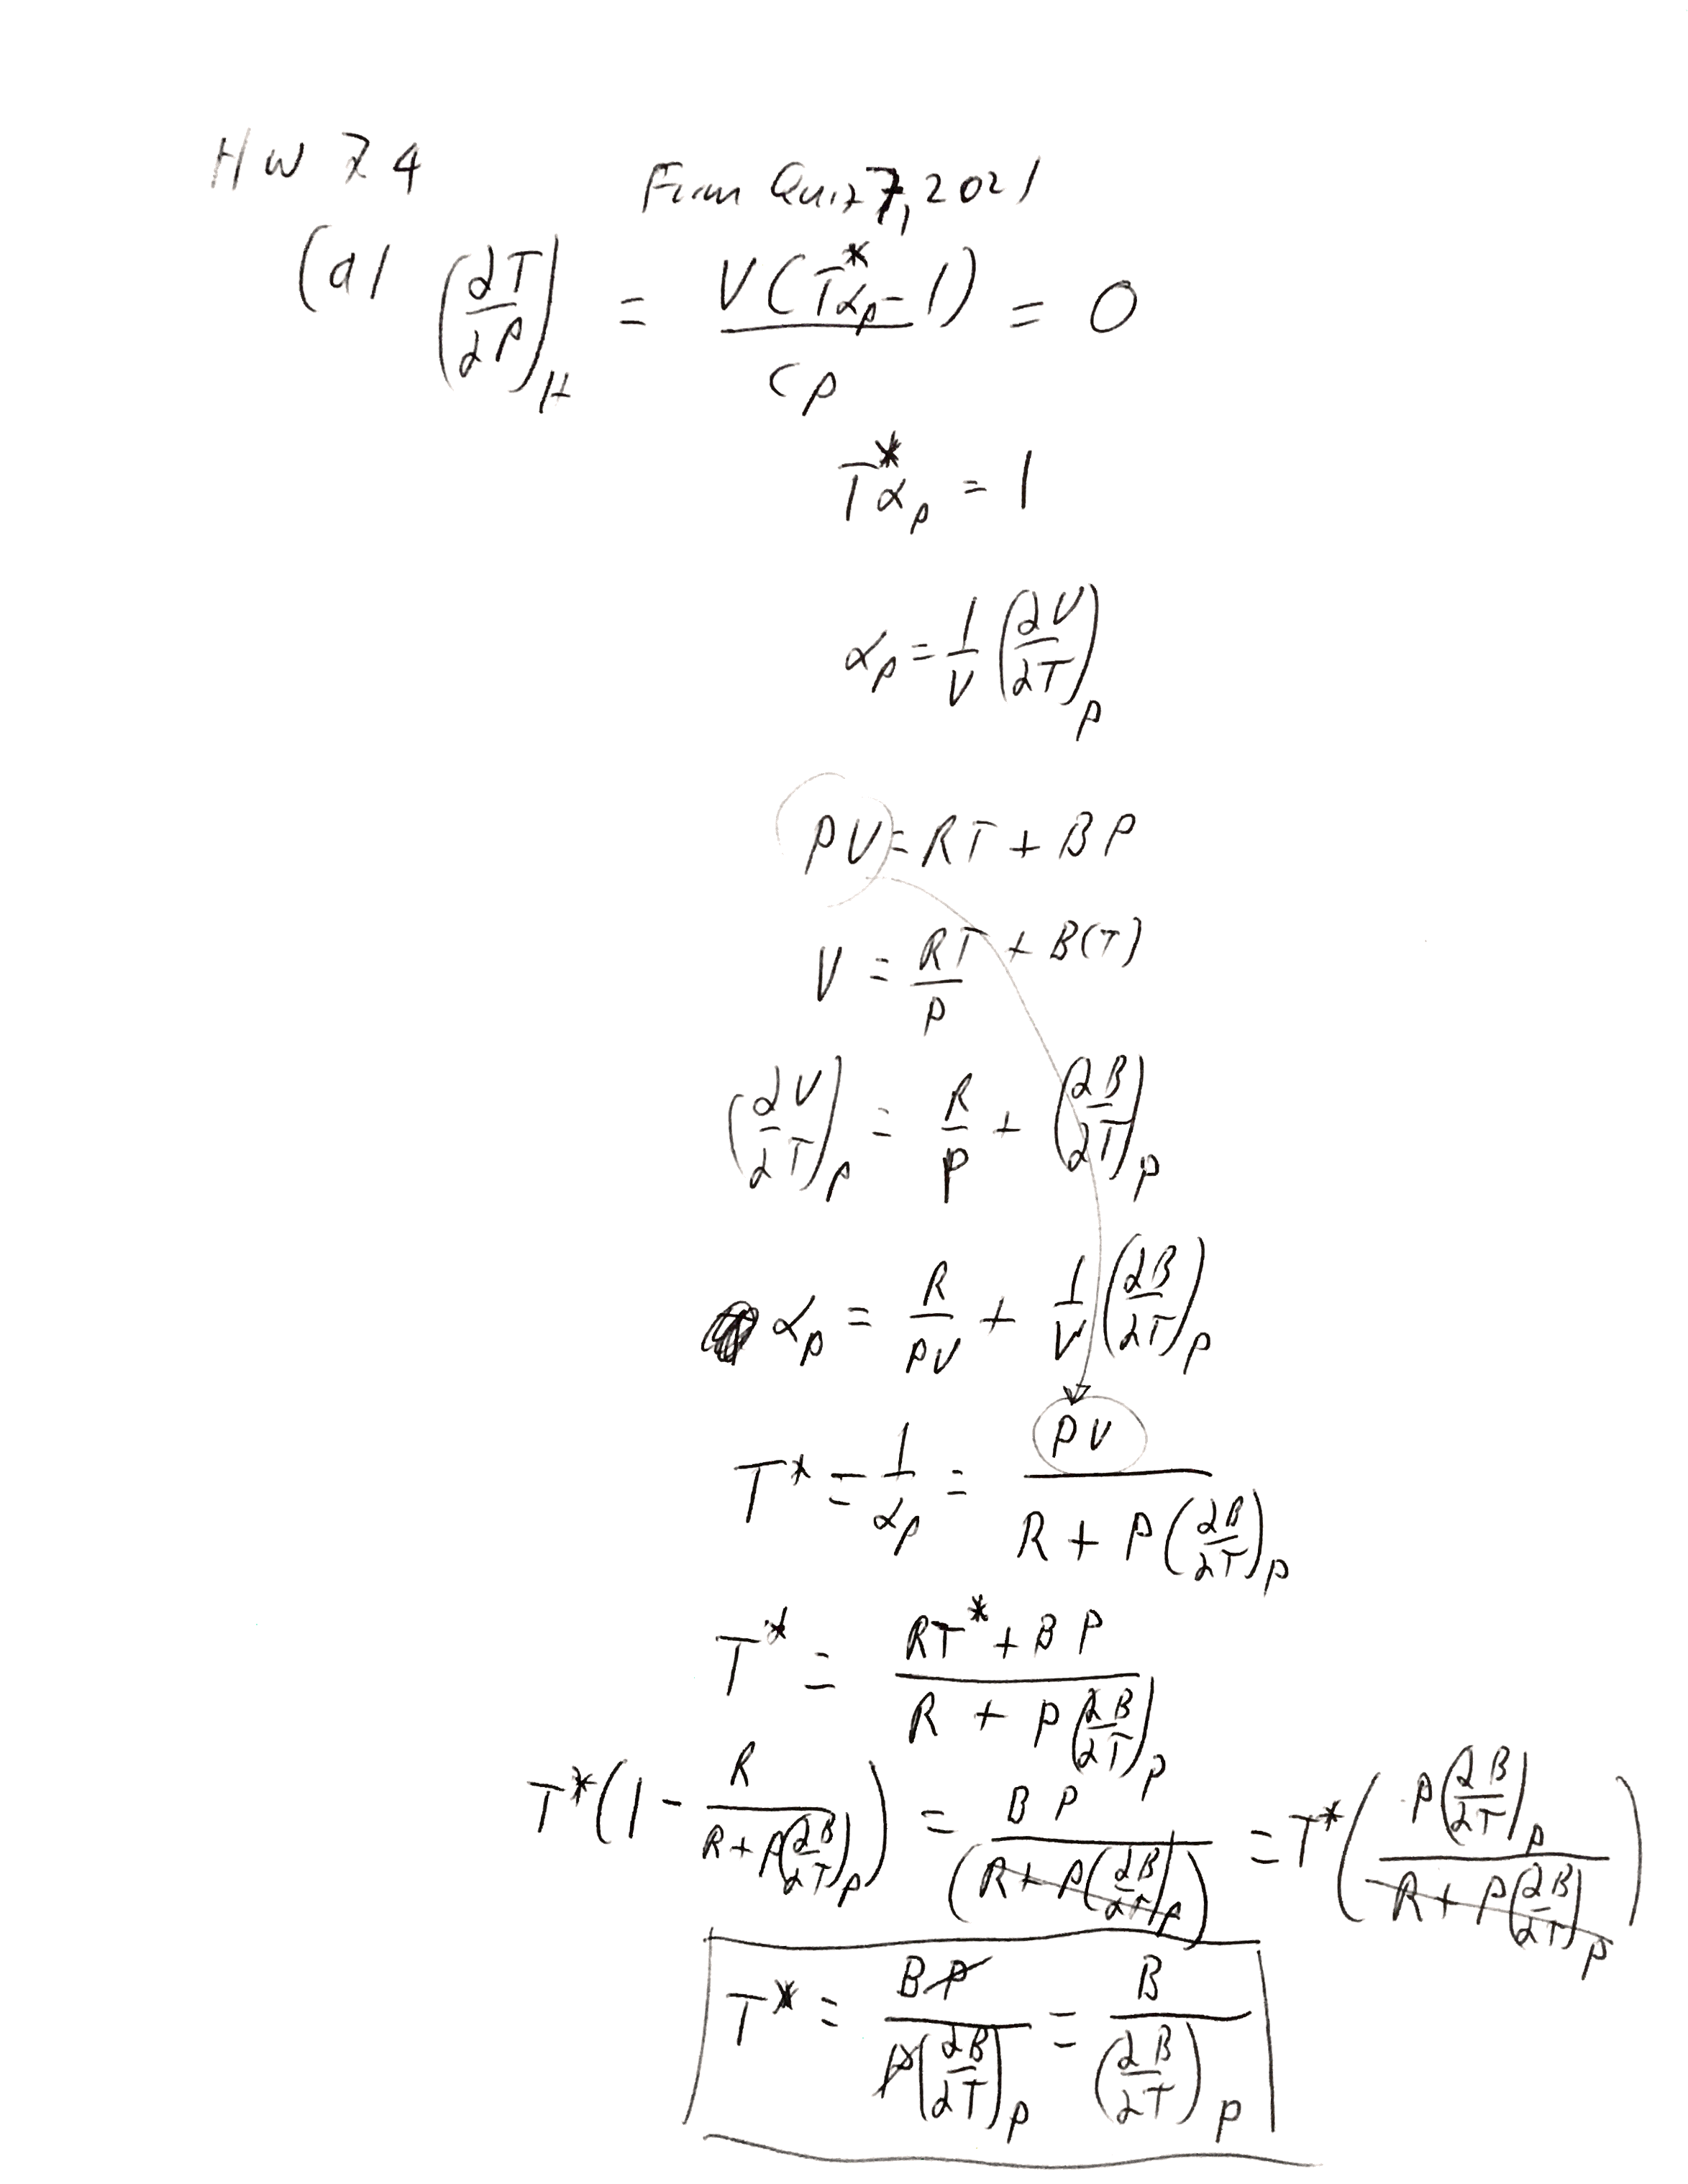 HW 7.4 From Quiz 7, 2021
(a) (∂T/∂P)_H = V(T*α_P - 1)/C_P = 0
T*α_P = 1
α_P = 1/V (∂V/∂T)_P
PV = RT + BP
V = RT/P + B(T)
(∂V/∂T)_P = R/P + (∂B/∂T)_P
α_P = R/PV + 1/V (∂B/∂T)_P
T* = 1/α_P = PV/(R + P(∂B/∂T)_P)
T* = (RT* + BP)/(R + P(∂B/∂T)_P)
T*(1 - R/(R + P(∂B/∂T)_P)) = BP/(R + P(∂B/∂T)_P) = T*(P(∂B/∂T)_P/(R + P(∂B/∂T)_P))
T* = BP/(P(∂B/∂T)_P) = B/(∂B/∂T)_P